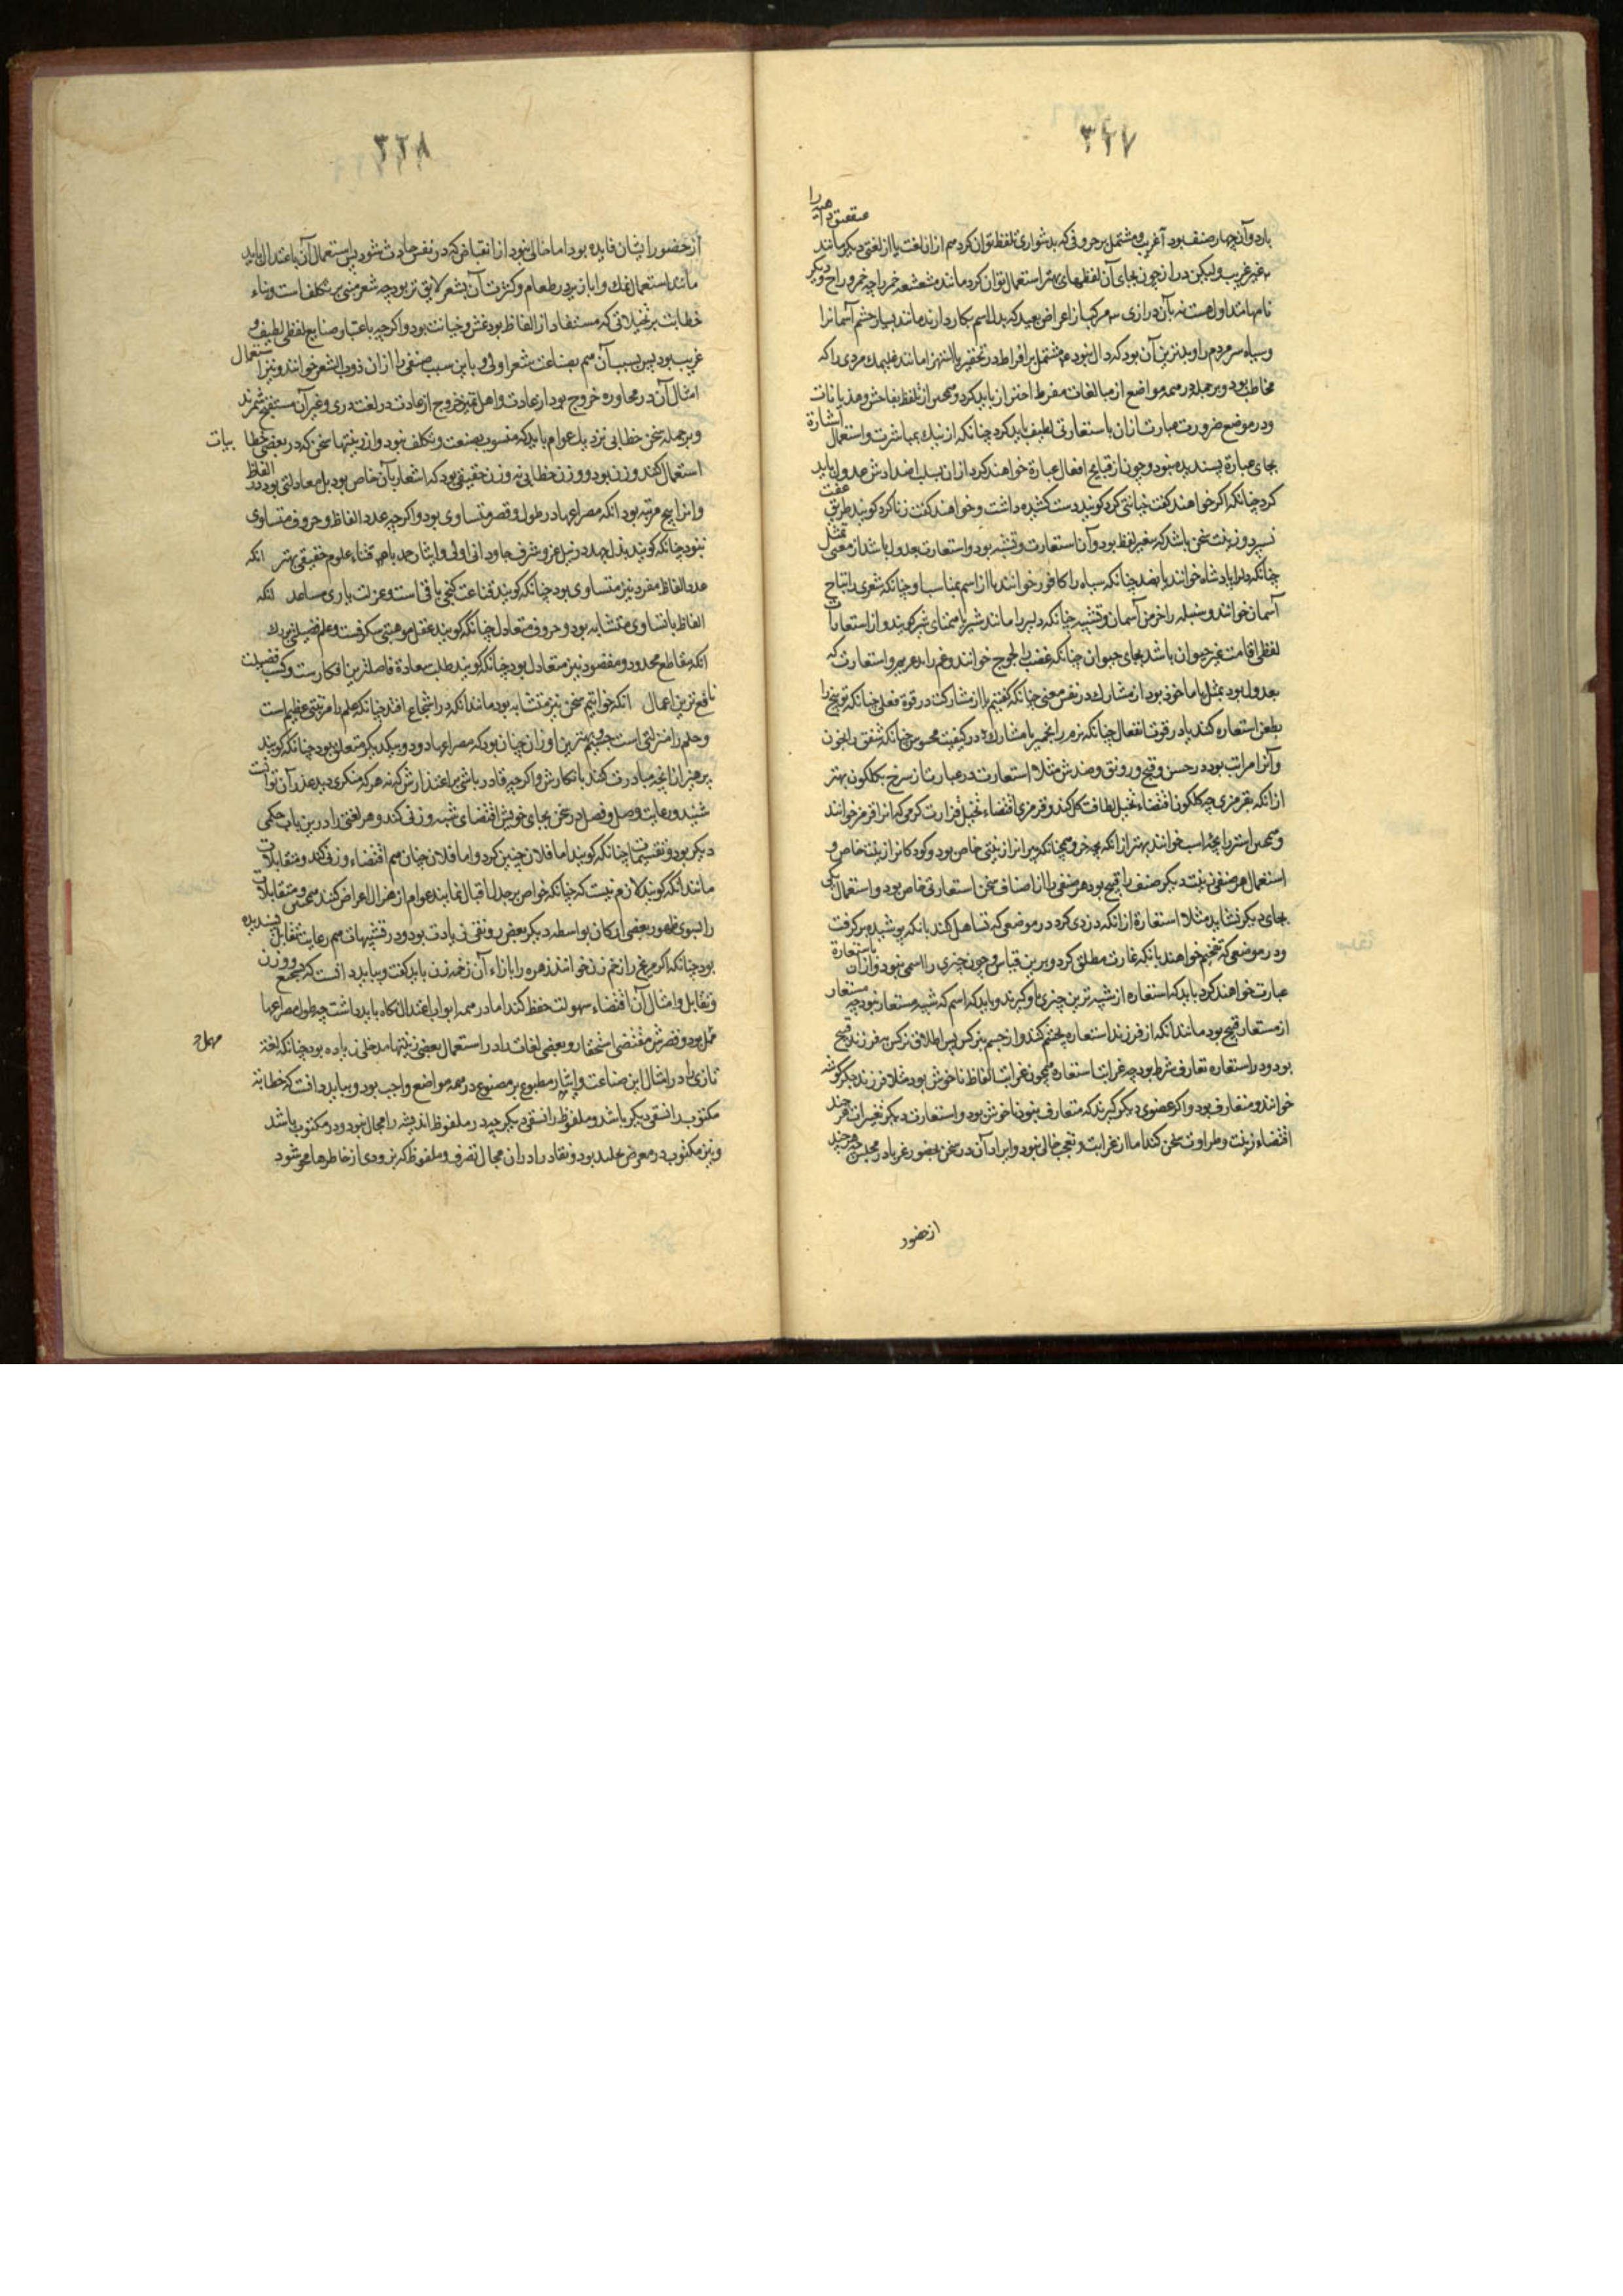 ٣٢٧
بارد و آن چهار صنف بود آ غریب و مشتمل بر حروفی که بدشواری تلفظ توان کرد هم از ان لغت یا از لغتی دیگر مانند
غیر غریب ولیکن دراز چون بجای آن لفظهای بهتر استعمال توان کرد مانند مشعشعه خمر را چه خمر و راح
نامها متداول هست نه بآن درازی مرکب از اعراض بعید که بدل اسم بکار دارند مانند بسیار چشم آسمانرا
و سیاه سر مردم را و بدترین آن بود که دال نبود مشتمل بر افراط در تحقیر یا استهزا مانند مردی را که
مخاطب بود و بر جمله در همه مواضع از مبالغات مفرط احتراز باید کرد و همچنین از تلفظ بفاحش و هذیانات
و در موضع ضرورت عبارت از ان باستعارتی لطیف باید کرد چنانکه از نیک بمباشرت و استعمال اشارة
بجای عبارة پسندیده بود و چون از قبایح افعال عبارة خواهند کرد از ان بسلب اضدادش عدول باید
کرد چنانکه اگر خواهند گفت خیانتی کرد گویند دست کشیده داشت و خواهند گفت زنا کرد گویند طریق عفت
نسپرد و زینت سخن باشد که بغیر لفظ بود و آن استعارت و تشبیه بود و استعارت بعدول باشد از معنی
چنانکه دارا پادشاه خوانند یا بضد چنانکه سیاه را کافور خوانند یا از اسم بمناسب و چنانکه شعری را نباح
آسمان خوانند و سنبله را خرمن آسمان و تشبیه چنانکه دلیر را مانند شیر یا همتای شیر گویند و از استعارات
لفظی اقامت غیر حیوان باشد بجای حیوان چنانکه غضب را لجوج خوانند و غم را و استعارت که
بعدول بود بمثل یا ماخوذ بود از مشارک در نفس معنی چنانکه گفتیم یا از مشارکت در قوة فعلی چنانکه توبیخ را
بطعن استعاره کنند یا در قوت انفعال چنانکه یا مشارک در کیفیت محسوس چنانکه شفق را بخون
و آنرا مراتب بود در حسن و قبح و رونق و ضدش مثلا استعارت در عبارت از سرخ بگلگون بهتر
از انکه بقرمزی چه گلگون اقتضاء تخیل لطافت گل کند و قرمزی اقتضاء تخیل قذارت کرمی که انرا قرمز خوانند
و همچنین استر را بچه اسب خوانند بهتر از انکه بچه خر و همچنانکه پیرانرا زینتی خاص بود و کودکانرا زینت خاص و
استعمال هر صنفی زینت دیگر صنف را قبیح بود هر صنفی را از اصناف سخن استعارتی خاص بود و استعمال یکی
بجای دیگر نشاید مثلا استعارة از انکه دزدی کرد در موضعی که تساهل کنند بانکه پوشیده برگرفت
و در موضعی که تفخیم خواهند بانکه غارت مطلق کرد و برین قیاس و چون چیزی را اسمی نبود و از ان باستعارة
عبارت خواهند کرد باید که استعاره از شبیه ترین چیزی باو گیرند و باید که اسم که شبیه مستعار نبود چه مستعار
از مستعار قبیح بود مانند انکه از فرزند استعاره بچشم کنند و از چشم بنرگس پس اطلاق نرگس بر فرزند قبیح
بود و در استعاره تعارف شرط بود چه غرابت استعاره همچون غرابت الفاظ ناخوش بود مثلا فرزند جگر گوشه
خوانند و متعارف بود و اگر عضوی دیگر گیرند که متعارف نبود ناخوش بود و استعارت و دیگر تغییرات هر چند
اقتضاء زینت و طراوت سخن کند اما از غرابت و تعجب خالی نبود و ایراد آن در سخن بحضور غربا در مجلس هر چند
از حضور
٣٢٨
از حضور ایشان فایده بود اما خالی نبود از انقباض که در نفس حادث شود پس استعمال آن باعتدال باید
مانند استعمال نمک و ابازیر در طعام و کثرت آن بشعر لایق تر بود چه شعر مبنی بر تکلف است و بناء
خطابت بر تخیلاتی که مستفاد از الفاظ بود غش و خیانت بود و اگرچه باعتبار صنایع لفظی لطیف و
غریب بود پس بسبب آن هم بصناعت شعر اولی و باین سبب صنفی را از ان ذوب الشعر خوانند و نیز استعمال
امثال آن در محاوره خروج بود از عادت و اهل تمیز خروج از عادت در لغت دری و غیر آن مستقبح شمرند
و بر جمله سخن خطابی نزدیک عوام باید که منسوب بصنعت و تکلف نبود و از زینتها سخن که در بعضی خطابیات
استعمال کنند وزن بود و وزن خطابی نه وزن حقیقی بود که اشعار بآن خاص بود بل معادلتی بود در الفاظ
و انرا پنج مرتبه بود آ انکه مصراعها در طول و قصر متساوی بود و اگرچه عدد الفاظ و حروف متساوی
نبود چنانکه گویند بذل جهد در نیل عز و شرف جاودانی اولی و ایثار جد باقتناء علوم حقیقی بهتر انکه
عدد الفاظ مفرد نیز متساوی بود چنانکه گویند قناعت گنجی باقی است و عزلت یاری مساعد انکه
الفاظ با تساوی متشابه بود و حروف متعادل چنانکه گویند عقل موهبتی شگرفست و علم فضیلتی بزرگ
انکه مقاطع ممدود و مقصور نیز متعادل بود چنانکه گویند طلب سعادة فاضلترین افکارست و کسب فضیلت
نافع ترین اعمال انکه خواتیم سخن نیز متشابه بود مانند انکه در اسجاع افتد چنانکه علم را مرتبتی عظیم است
و حلم را منزلتی است جسیم و بهترین اوزان چنان بود که مصراعها دو دو بیکدیگر متعلق بود چنانکه گویند
پرهیز از انچه مبادرت کنند بانکارش و اگرچه قادر باشی بر اعتذارش که نه هر که منکری دید عذر آن تواند
شنید و رعایت وصل و فصل در سخن بجای خویش اقتضای شبه وزنی کند و هر لغتی را درین باب حکمی
دیگر بود و تقسیمات چنانکه گویند اما فلان چنین کرد و اما فلان چنان هم اقتضاء وزنی کند و متقابلات
مانند انکه گویند لازم نیست که چنانکه خواص بر جد اقبال نمایند عوام از هزل اعراض کنند همچنین و متقابلات
را نسوی ظهور بعضی ارکان بواسطه دیگر بعض رونقی زیادت بود و در تشبیهات هم رعایت تقابل پسندیده
بود چنانکه اگر مریخ را زخم زن خوانند زهره را بازاء آن زخمه زن باید گفت و بباید دانست که سجع و وزن
و تقابل و امثال آن اقتضاء سهولت حفظ کند اما در همه ابواب اعتدال نگاه باید داشت چه طول مصراعها
ممل بود و قصرش مقتضی استحقار و بعضی لغات را در استعمال بعضی زینتها مدخلی زیاده بود چنانکه لغة
تازی را در امثال این صناعت و ایثار مطبوع بر مصنوع در همه مواضع واجب بود و بباید دانست که خطابة
مکتوب را نسقی دیگر باشد و ملفوظ را نسقی دیگر چه در ملفوظ اندیشه را مجال نبود و در مکتوب باشد
و نیز مکتوب در معرض خلد بود و نقاد را در ان مجال تصرف و ملفوظ که بزودی از خاطرها محو شود